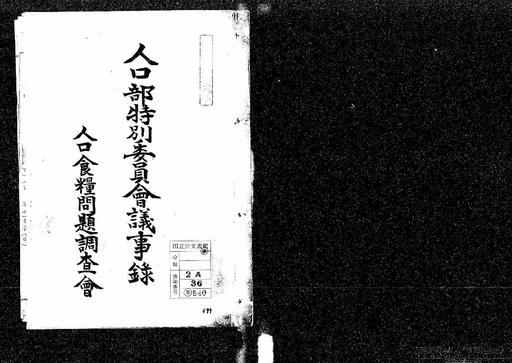 人口部特別委員會議事録
人口食糧問題調査會
国立公文書館
分類
2A
36